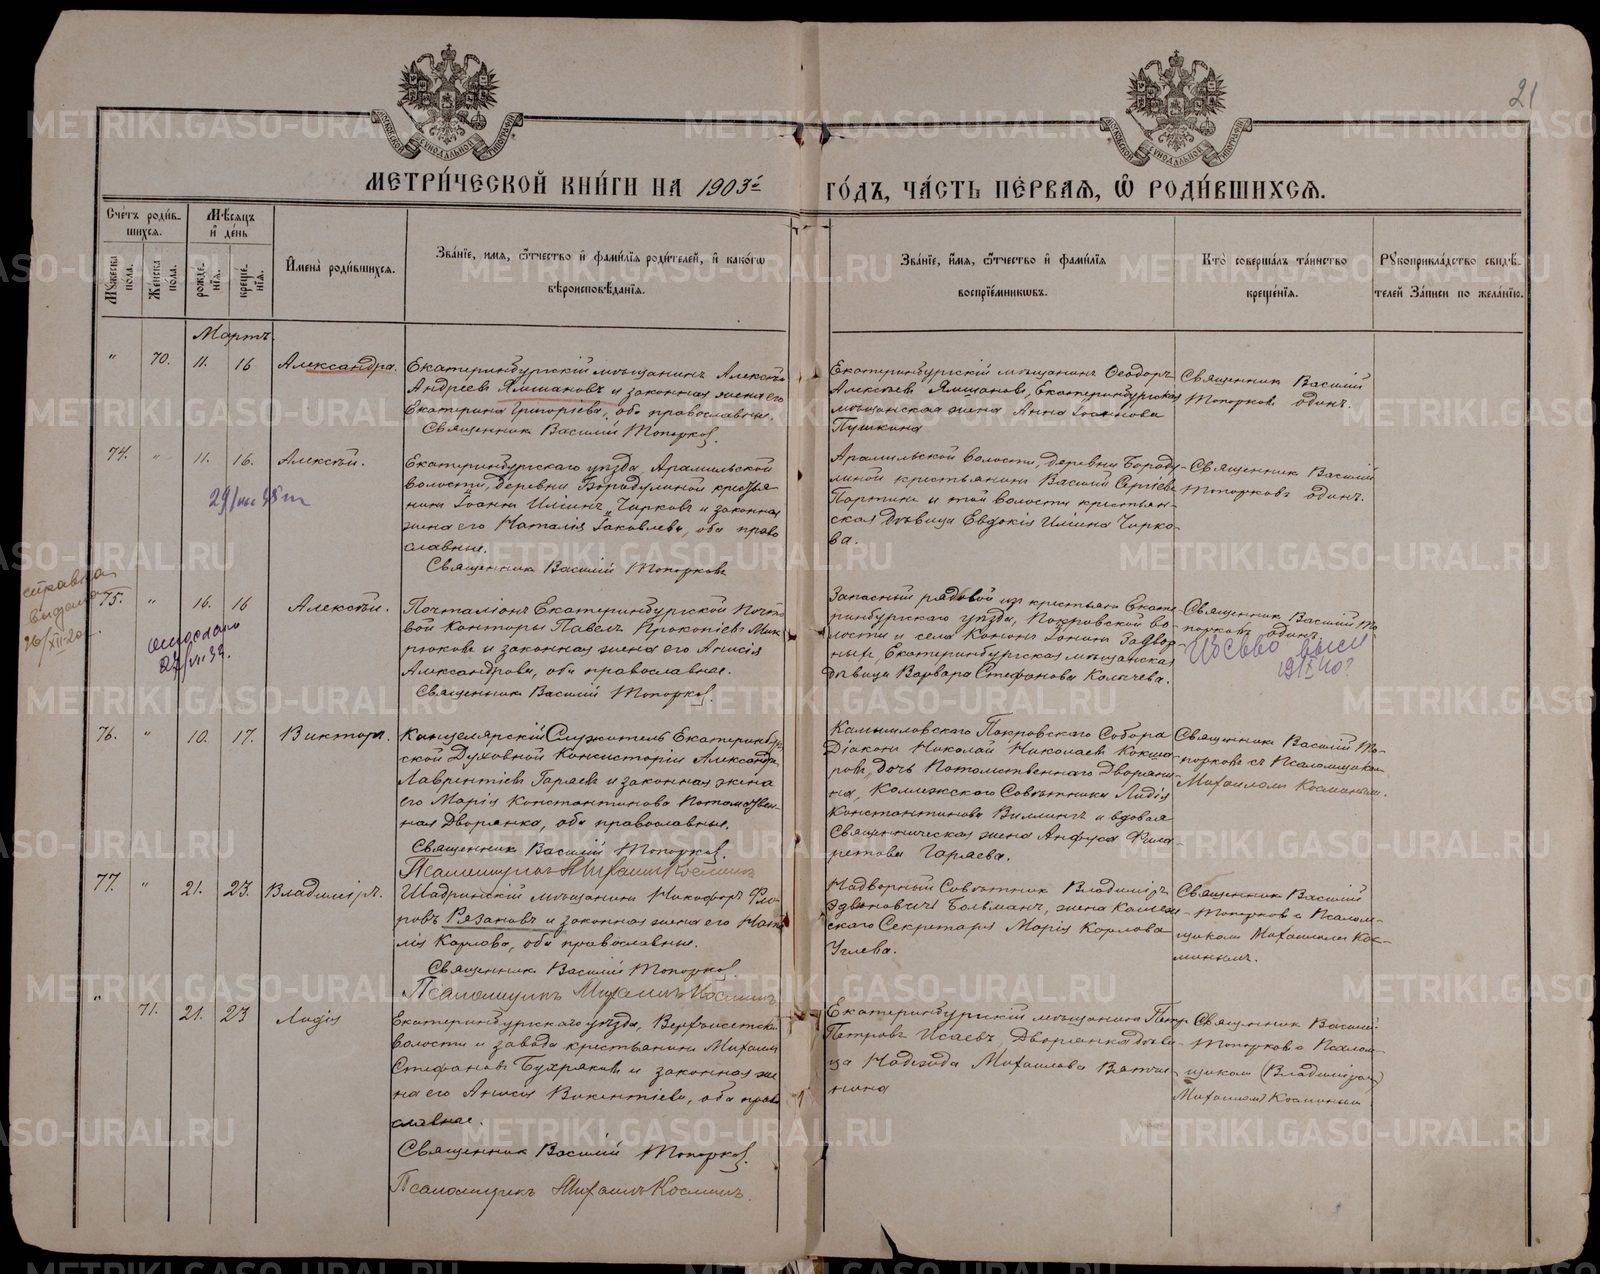 21
МОСКОВСКОЙ СѴНОДАЛЬНОЙ ТИПОГРАФІИ
МОСКОВСКОЙ СѴНОДАЛЬНОЙ ТИПОГРАФІИ
МЕТРИ́ЧЕСКОЙ КНИ́ГИ НА 1903й ГО́ДЪ, ЧА́СТЬ ПЕ́РВАЯ, Ѡ҆ РОДИ́ВШИХСЯ.
Сче́тъ роди́в-
шихся.
Мѣ́сяцъ
и҆ де́нь
Мꙋ́жеска пола.
Же́нска пола.
рожде́-нїя.
креще́-нїя.
И҆мена̀ роди́вшихся.
Зва́нїе, и҆́мя, ѻ҆́тчество и҆ фами́лїя роди́телей, и҆ како́гѡ
вѣроисповѣ́данїя.
Зва́нїе, и҆́мя, ѻ҆́тчество и҆ фами́лїя
воспрїе́мникѡвъ.
Кто̀ соверша́лъ та́инство
креще́нїя.
Рꙋкоприкла́дство свидѣ́-
телей за́писи по жела́нїю.
Мартъ.
" 70. 11. 16 Александра.
Екатеринбургскій мѣщанинъ Алексѣй
Андреевъ Ямшановъ и законная жена его
Екатерина Григоріева, оба православные.
Священникъ Василій Топорковъ.
Екатеринбургскій мѣщанинъ Ѳеодоръ
Алексѣевъ Ямшановъ, Екатеринбургская
мѣщанская жена Анна Іоаннова
Пушкина
Священникъ Василій
Топорковъ одинъ.
74. " 11. 16. Алексѣй.
Екатеринбургскаго уѣзда, Арамильской
волости, деревни Бородулиной крестья-
нинъ Іоаннъ Иліинъ Чирковъ и законная
жена его Наталія Іаковлева, оба право
славные.
Священникъ Василій Топорковъ
Арамильской волости, деревни Бороду-
линой крестьянинъ Василій Сергіевъ
Партинъ и той волости крестьян-
ская дѣвица Евдокія Иліина Чирко-
ва.
Священникъ Василій
Топорковъ одинъ.
справка
выдана
26/XII-20
75. " 16. 16 Алексѣй.
Почталіонъ Екатеринбургской Почто
вой Конторы Павелъ Прокопіевъ Мик
рюковъ и законная жена его Анисія
Александрова, оба православные.
Священникъ Василій Топорковъ.
Запасный рядовой изъ крестьянъ Екате
ринбургскаго уѣзда, Покровской во-
лости и села Кононъ Іонинъ Задвор-
ныхъ, Екатеринбургская мѣщанская
дѣвица Варвара Стефанова Калачева.
Священникъ Василій То-
порковъ одинъ.
76. " 10. 17. Викторъ.
Канцелярскій Служитель Екатеринбург
ской Духовной Консисторіи Александръ
Лаврентіевъ Гаряевъ и законная жена
его Марія Константинова Потомствен-
ная Дворянка, оба православные.
Священникъ Василій Топорковъ.
Псаломщикъ Михаилъ Косминъ
Камышловскаго Покровскаго Собора
Діаконъ Николай Николаевъ Кокша
ровъ, дочь Потомственнаго Дворяни
на, Коллежскаго Совѣтника Лидія
Константинова Виллингъ и вдовая
Священническая жена Анфуса Фила-
ретова Гаряева.
Священникъ Василій То-
порковъ съ Псаломщикомъ
Михаиломъ Косминымъ.
77. " 21. 23. Владиміръ.
Шадринскій мѣщанинъ Никифоръ Фло
ровъ Рязановъ и законная жена его Ната
лія Карлова, оба православные.
Священникъ Василій Топорковъ.
Псаломщикъ Михаилъ Косминъ
Надворный Совѣтникъ Владиміръ
Эдвиновичъ Больманъ, жена Коллеж
скаго Секретаря Марія Карлова
Углева.
Священникъ Василій
Топорковъ съ Псалом-
щикомъ Михаиломъ Кос-
минымъ.
" 71. 21. 23 Лидія
Екатеринбургскаго уѣзда, Верхъисетской
волости и завода крестьянинъ Михаилъ
Стефановъ Бухряковъ и законная же
на его Анисія Викентіева, оба право
славные.
Священникъ Василій Топорковъ.
Псаломщикъ Михаилъ Косминъ.
Екатеринбургскій мѣщанинъ Петръ
Петровъ Исаевъ, Дворянка дѣви-
ца Надежда Михаилова Вятчи-
нина
Священникъ Василій
Топорковъ съ Псалом-
щикомъ (Владиміромъ)
Михаиломъ Косминымъ
METRIKI.GASO-URAL.RU